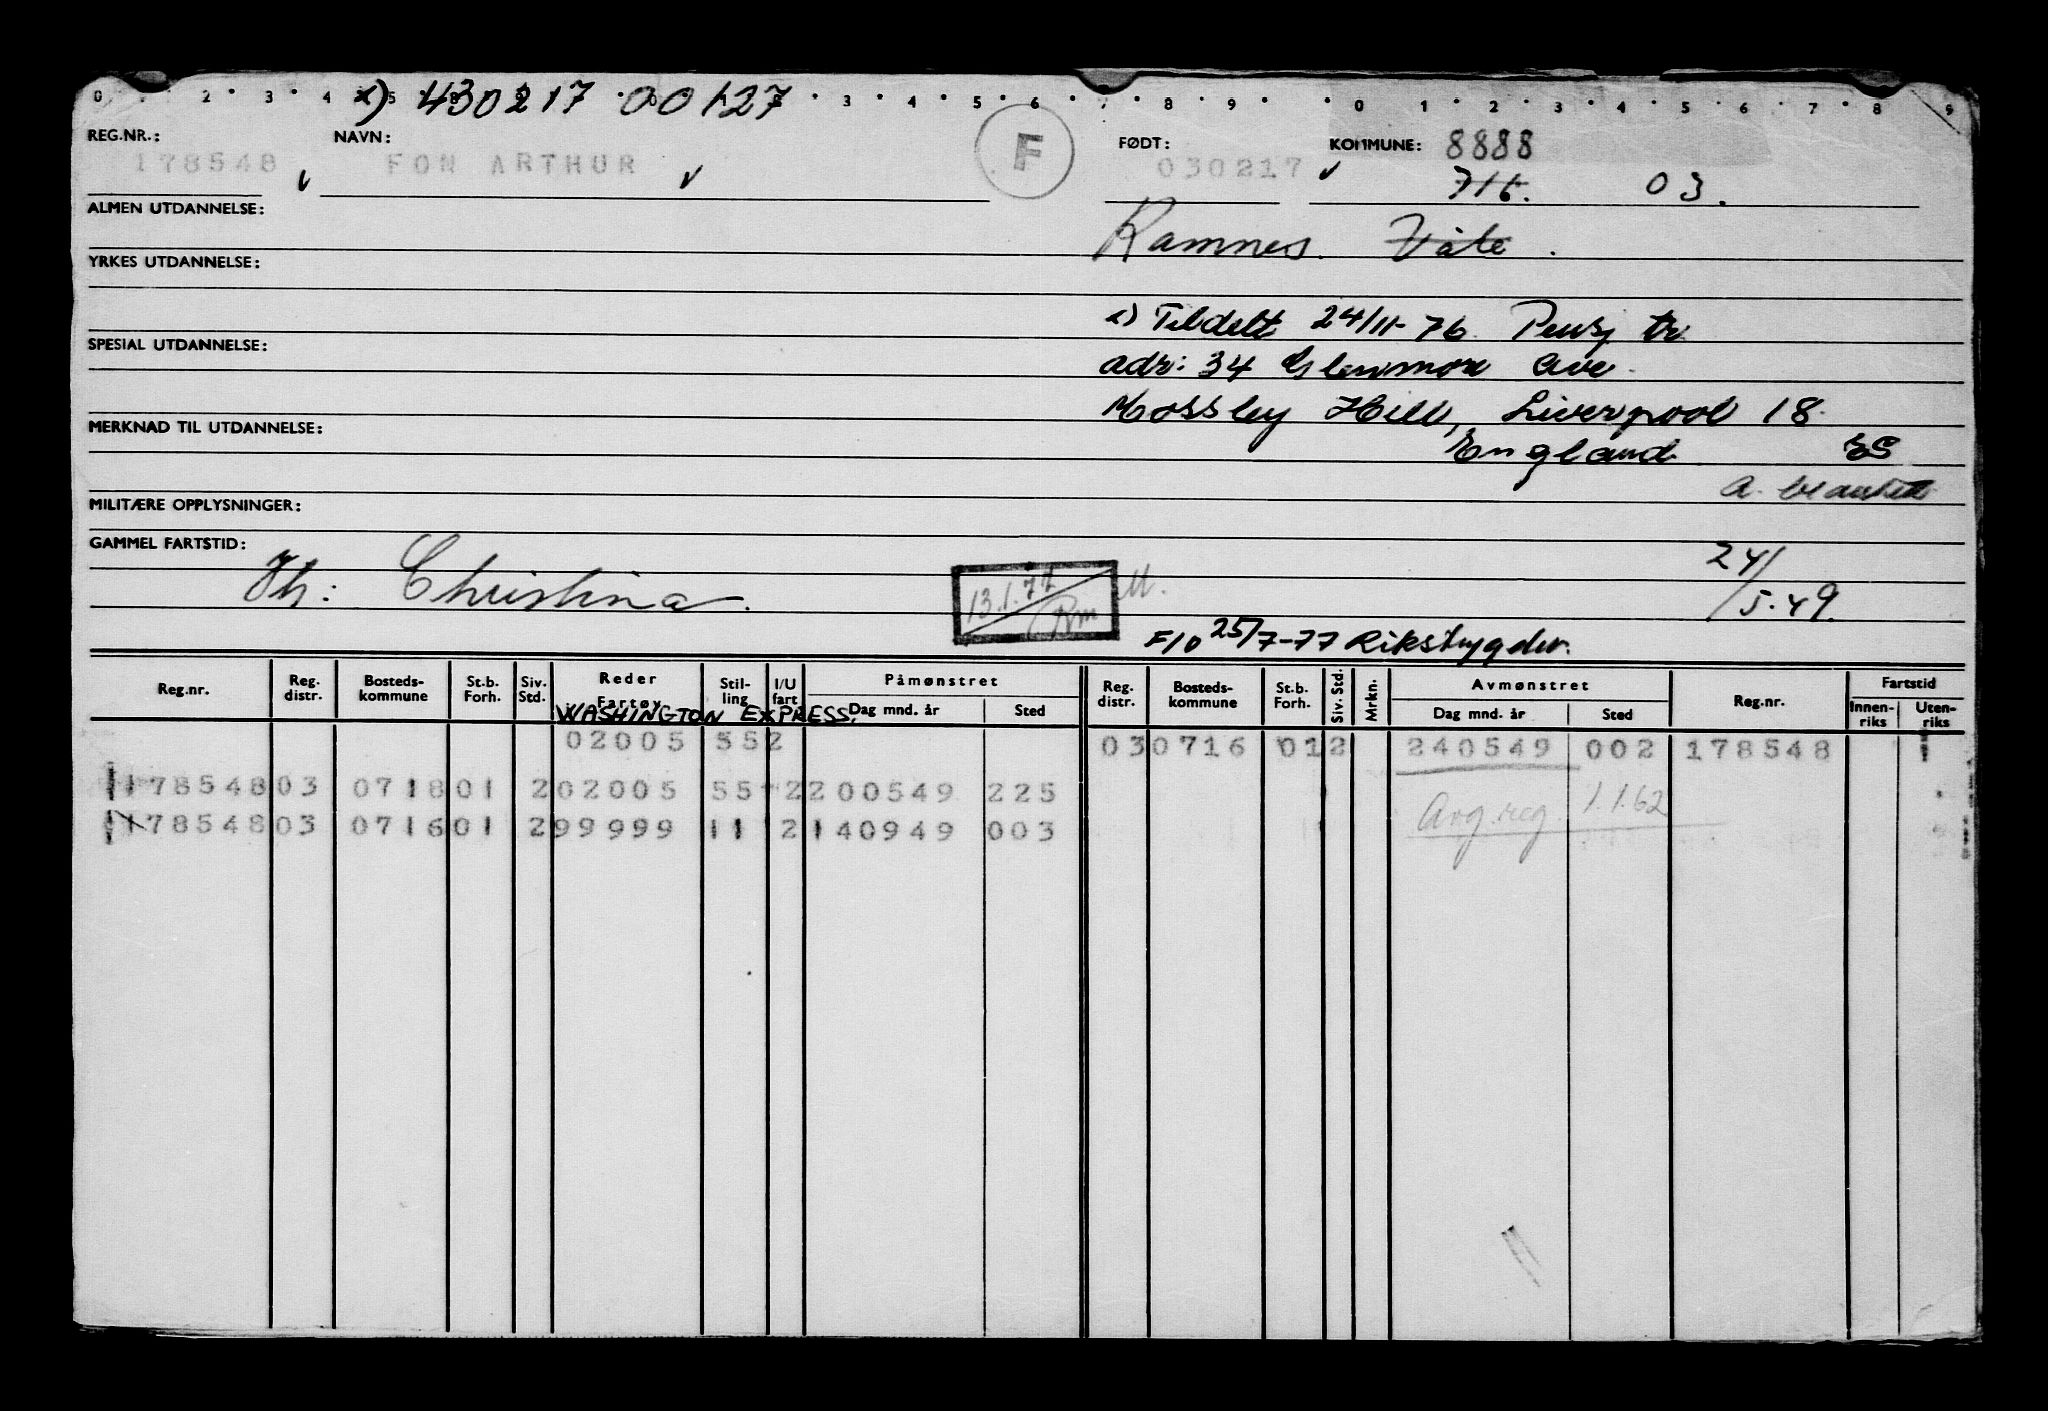 0 · 2 · 3 · 4 · 5 · 8 · 3 · 4 · 5 · 6 · 7 · 8 · 9 · 0 1 · 2 · 3 · 4 · 5 · 6 · 7 · 8 9
x) 430217 00127
REG.NR.: NAVN: F FØDT: KOMMUNE: 8888
178548 FON ARTHUR 030217 716. 03.
ALMEN UTDANNELSE:
Ramnes. Våle.
YRKES UTDANNELSE:
x) Tildelt 24/11-76 Pensj tr
SPESIAL UTDANNELSE:
adr: 34 Glenmore Ave
Mossley Hill, Liverpool 18
MERKNAD TIL UTDANNELSE:
England
MILITÆRE OPPLYSNINGER:
GAMMEL FARTSTID:
Christina. 24/5.49.
13.1.77
25/7-77 Rikstrygdev.
Reg.nr. Reg. distr. Bosteds-kommune St.b. Forh. Siv. Std. Reder Fartøy Stil-ling I/U fart Påmønstret Dag mnd. år Sted Reg. distr. Bosteds-kommune St.b. Forh. Siv. Std. Mrkn. Avmønstret Dag mnd. år Sted Reg.nr. Fartstid Innen-riks Uten-riks
WASHINGTON EXPRESS.
02005 552 030716 012 240549 002 178548
178548 03 0718 01 2 02005 55 2 200549 225
Avg.reg. 1.1.62
178548 03 0716 01 2 99999 11 2 140949 003